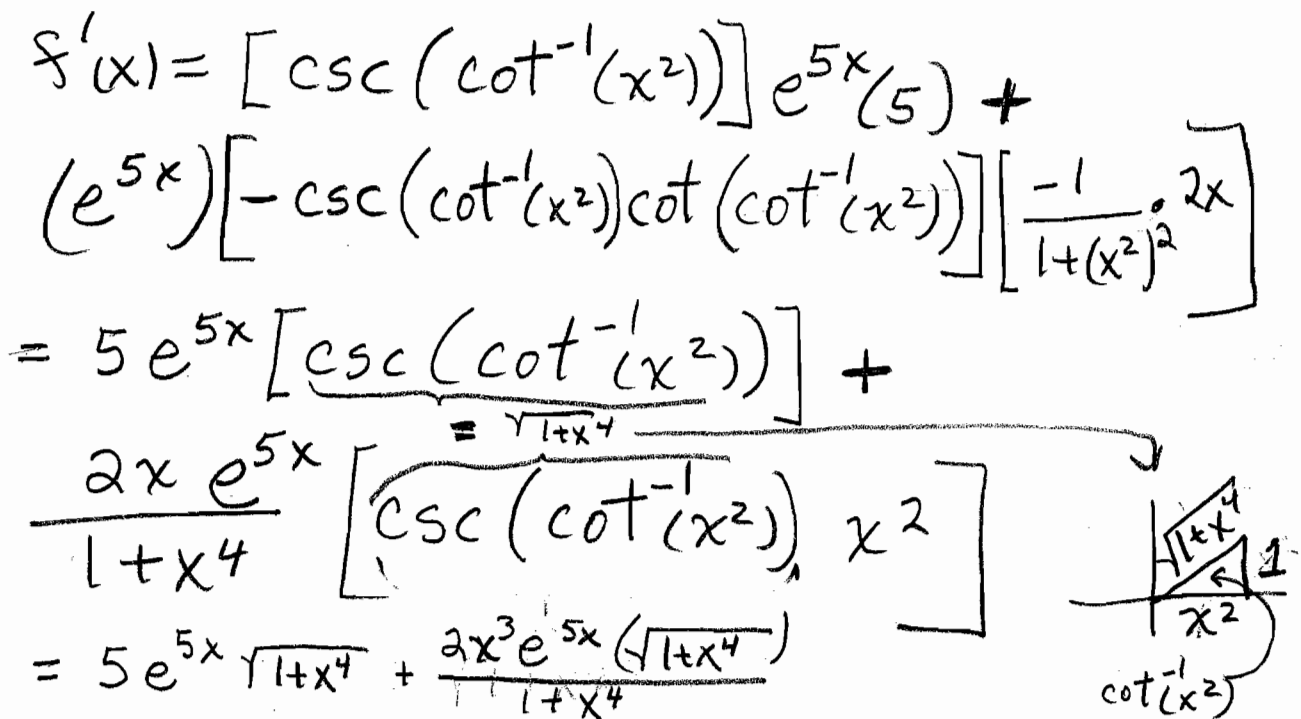 f'(x) = [csc(cot⁻¹(x²))] e^{5x}(5) +
(e^{5x})[-csc(cot⁻¹(x²))cot(cot⁻¹(x²))][\frac{-1}{1+(x²)²} · 2x]
= 5e^{5x}[csc(cot⁻¹(x²))] +
= √(1+x⁴)
\frac{2x e^{5x}}{1+x⁴} [csc(cot⁻¹(x²)) x²]
√(1+x⁴) 1
x²
cot⁻¹(x²)
= 5e^{5x} √(1+x⁴) + \frac{2x³e^{5x}(√(1+x⁴))}{1+x⁴}